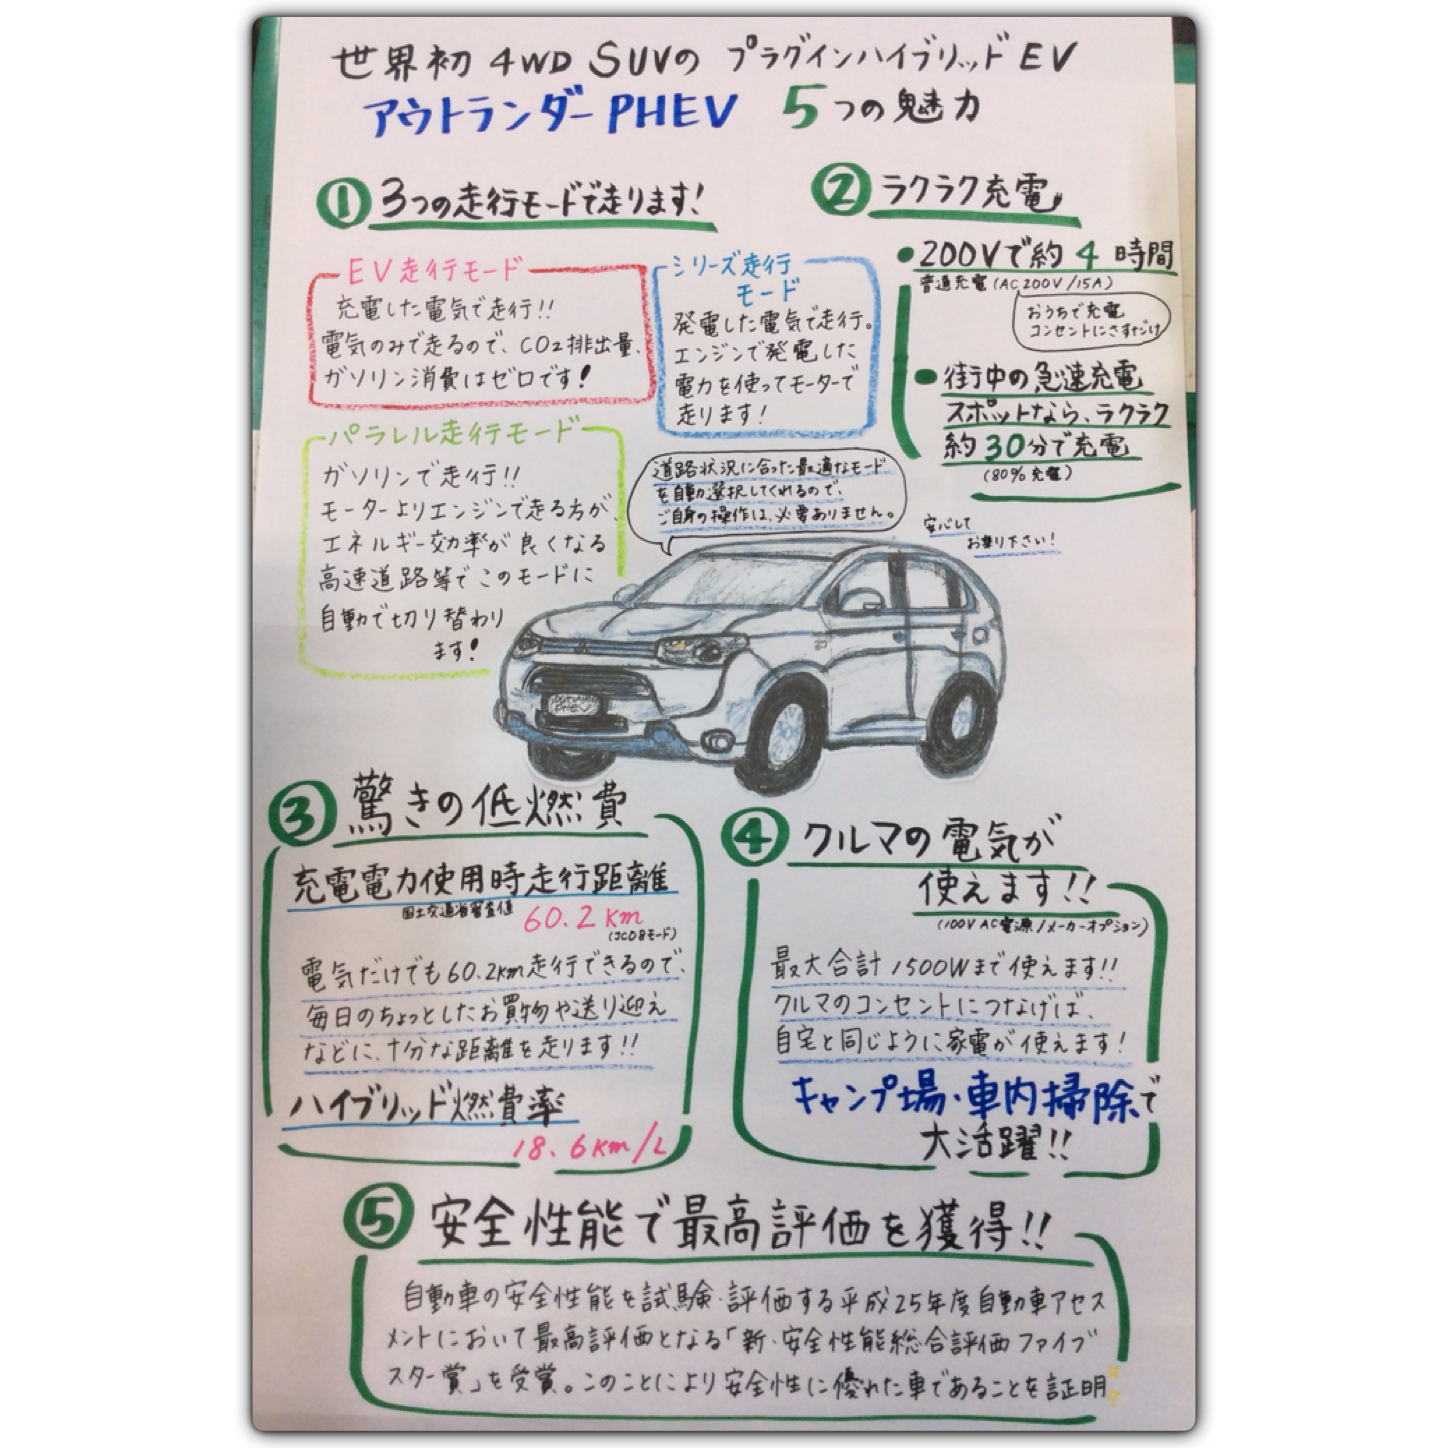 世界初 4WD SUVの プラグインハイブリッドEV
アウトランダーPHEV 5つの魅力
① 3つの走行モードで走ります!
EV走行モード
充電した電気で走行!!
電気のみで走るので、CO2排出量、
ガソリン消費はゼロです!
シリーズ走行
モード
発電した電気で走行。
エンジンで発電した
電力を使ってモーターで
走ります!
パラレル走行モード
ガソリンで走行!!
モーターよりエンジンで走る方が、
エネルギー効率が良くなる
高速道路等でこのモードに
自動で切り替わり
ます!
道路状況に合った最適なモード
を自動選択してくれるので、
ご自身の操作は、必要ありません。
② ラクラク充電
•200Vで約4時間
普通充電(AC200V/15A)
おうちで充電
コンセントにさすだけ
•街中の急速充電
スポットなら、ラクラク
約30分で充電
(80%充電)
安心して
お乗り下さい!
PHEV
③ 驚きの低燃費
充電電力使用時走行距離
国土交通省審査値
60.2km
(JC08モード)
電気だけでも60.2km走行できるので、
毎日のちょっとしたお買物や送り迎え
などに、十分な距離を走ります!!
ハイブリッド燃費率
18.6km/L
④ クルマの電気が
使えます!!
(100V AC電源/メーカーオプション)
最大合計1500Wまで使えます!!
クルマのコンセントにつなげば、
自宅と同じように家電が使えます!
キャンプ場・車内掃除で
大活躍!!
⑤ 安全性能で最高評価を獲得!!
自動車の安全性能を試験・評価する平成25年度自動車アセス
メントにおいて最高評価となる「新・安全性能総合評価ファイブ
スター賞」を受賞。このことにより安全性に優れた車であることを証明